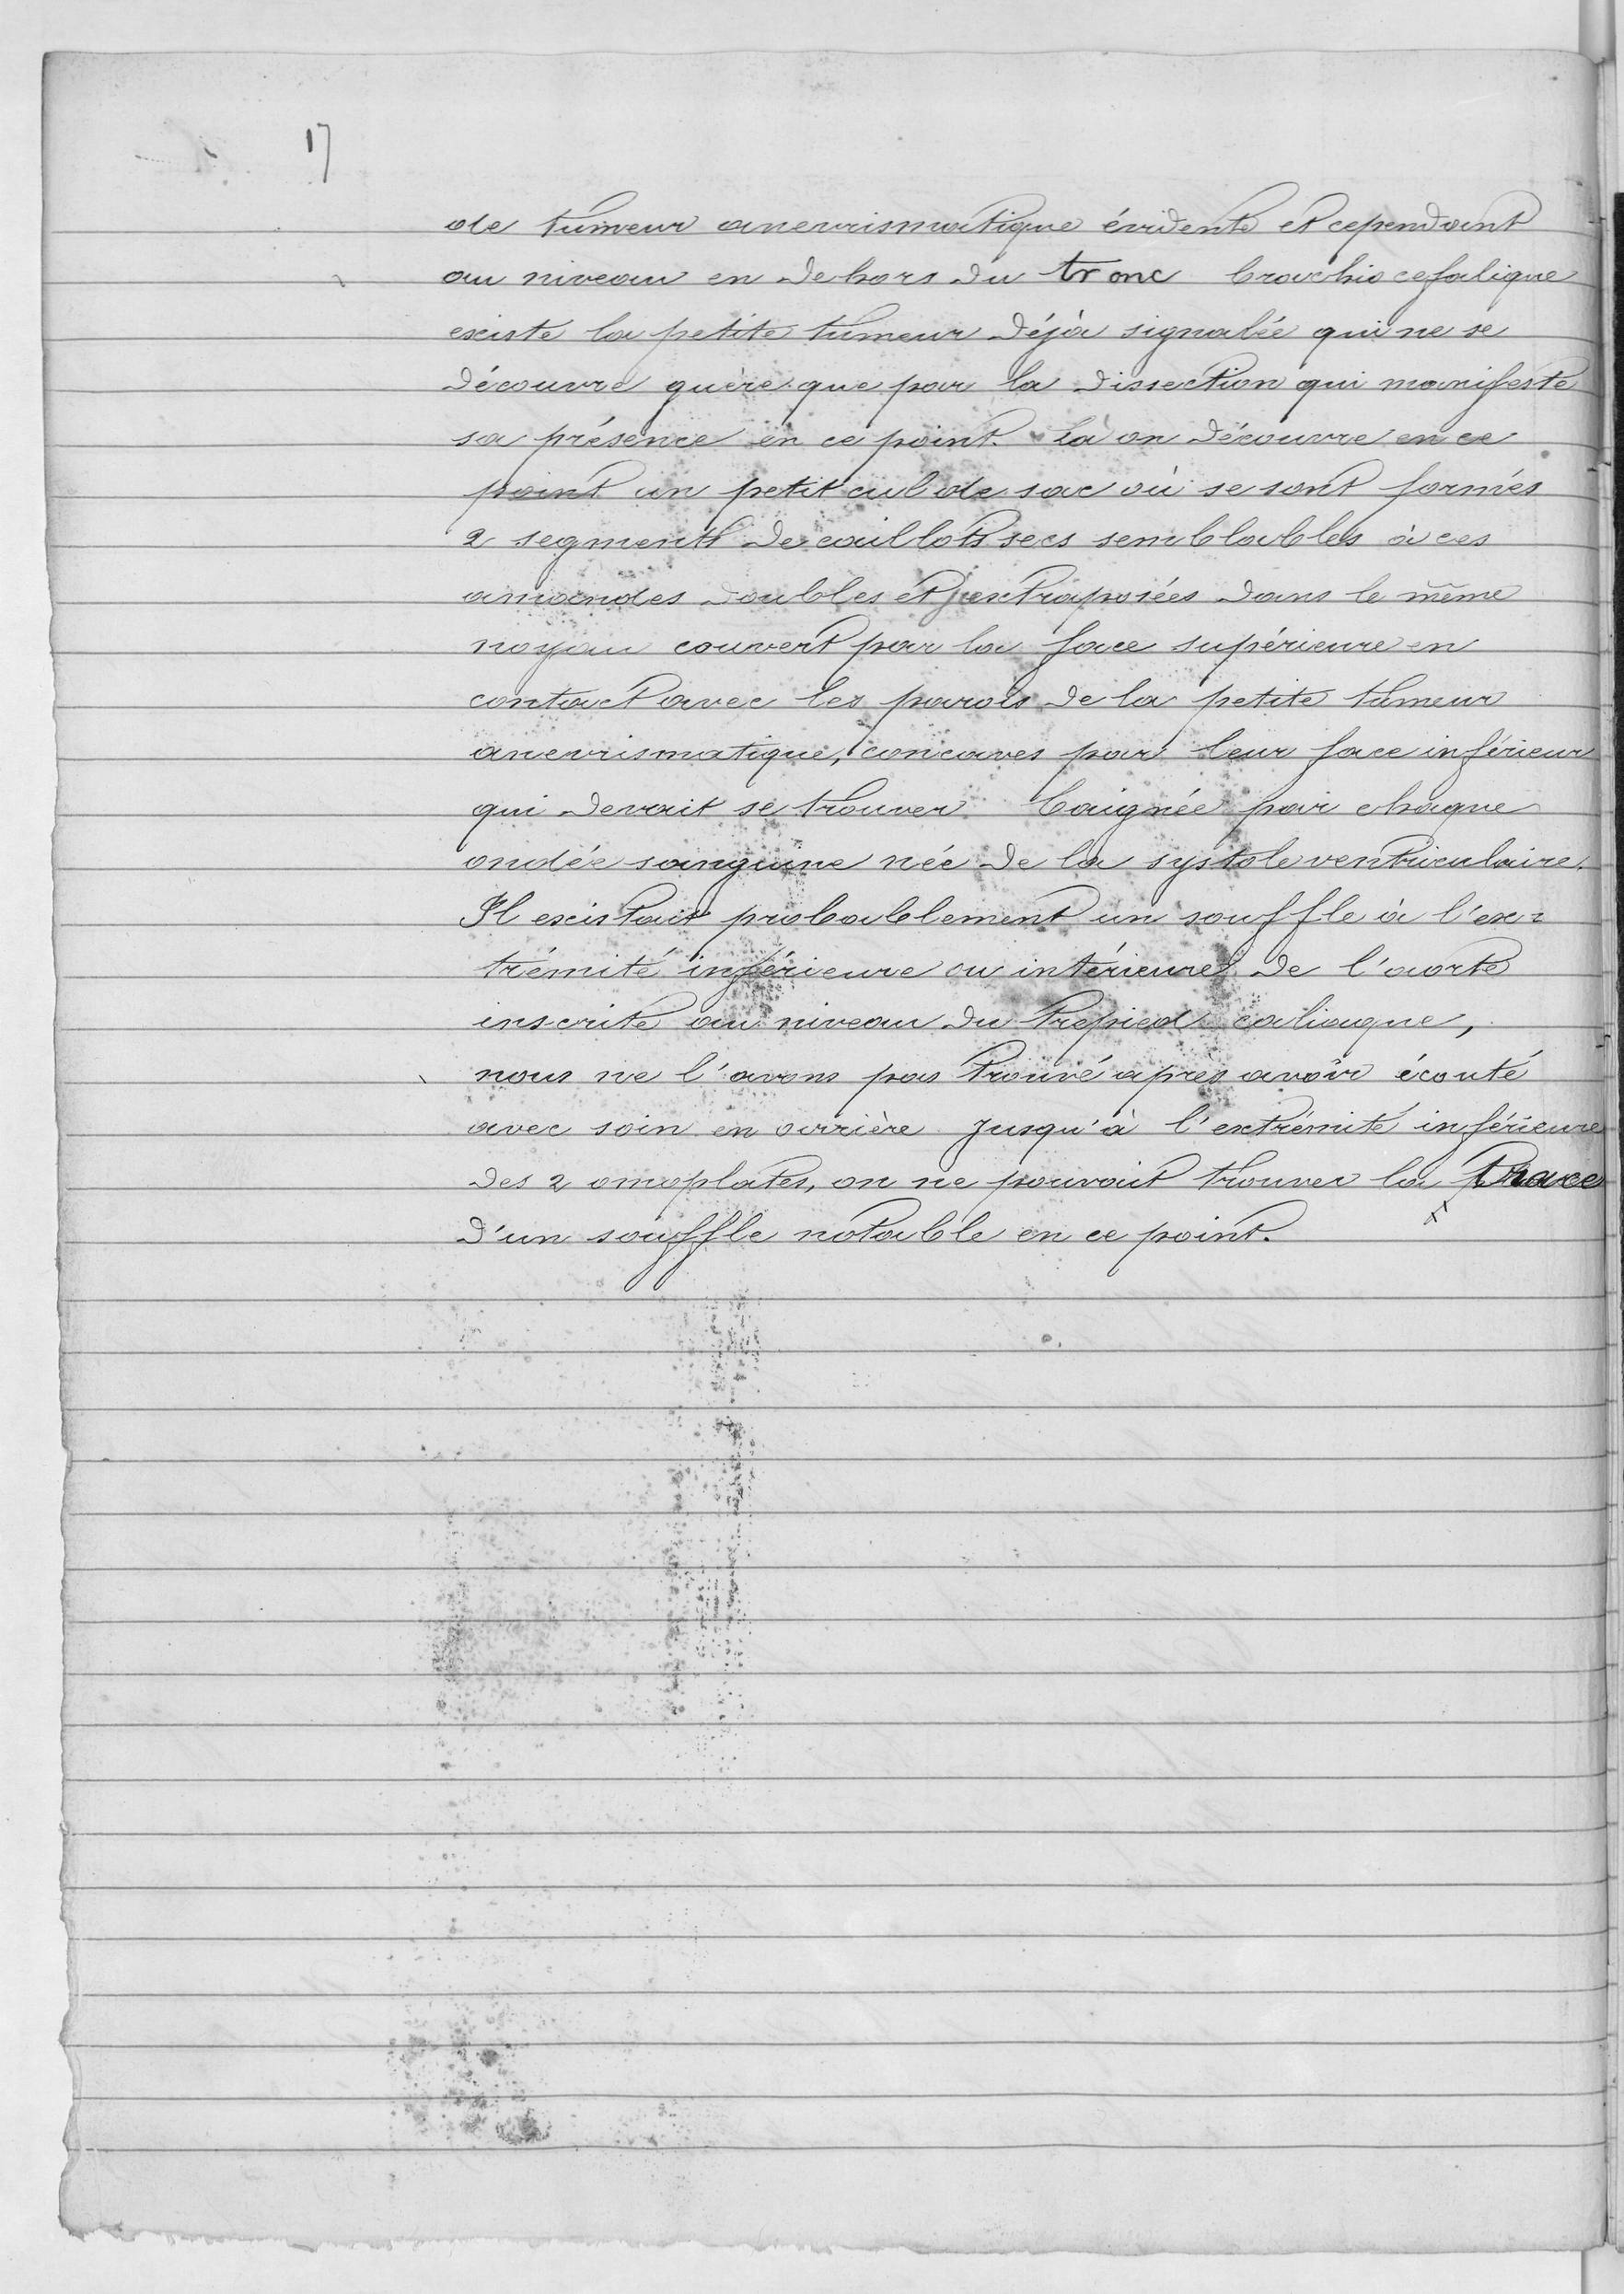 17
de tumeur anevrismatique évidente et cependant
au niveau en dehors du tronc brachio cefalique
existe la petite tumeur déjà signalée qui ne se
découvre guère que par la dissection qui manifeste
sa présence en ce point. là on découvre en ce
point un petit cul de sac où se sont formés
2 segments de caillots secs semblables à ces
amandes doubles et juxtraposées dans le même
noyau couvert par la face supérieure en
contact avec les parois de la petite tumeur
anevrismatique, concaves par leur face inférieur
qui devait se trouver baignée par chaque
ondée sanguine née de la systole ventriculaire.
Il existait probablement un souffle à l'ex=
trémité inférieure ou intérieure de l'aorte
inscrite au niveau du trepied caliaque,
nous ne l'avons pas trouvé après avoir écouté
avec soin en arrière jusqu'à l'extrémité inférieure
des 2 omoplates, on ne pouvait trouver la trace
d'un souffle notable en ce point.